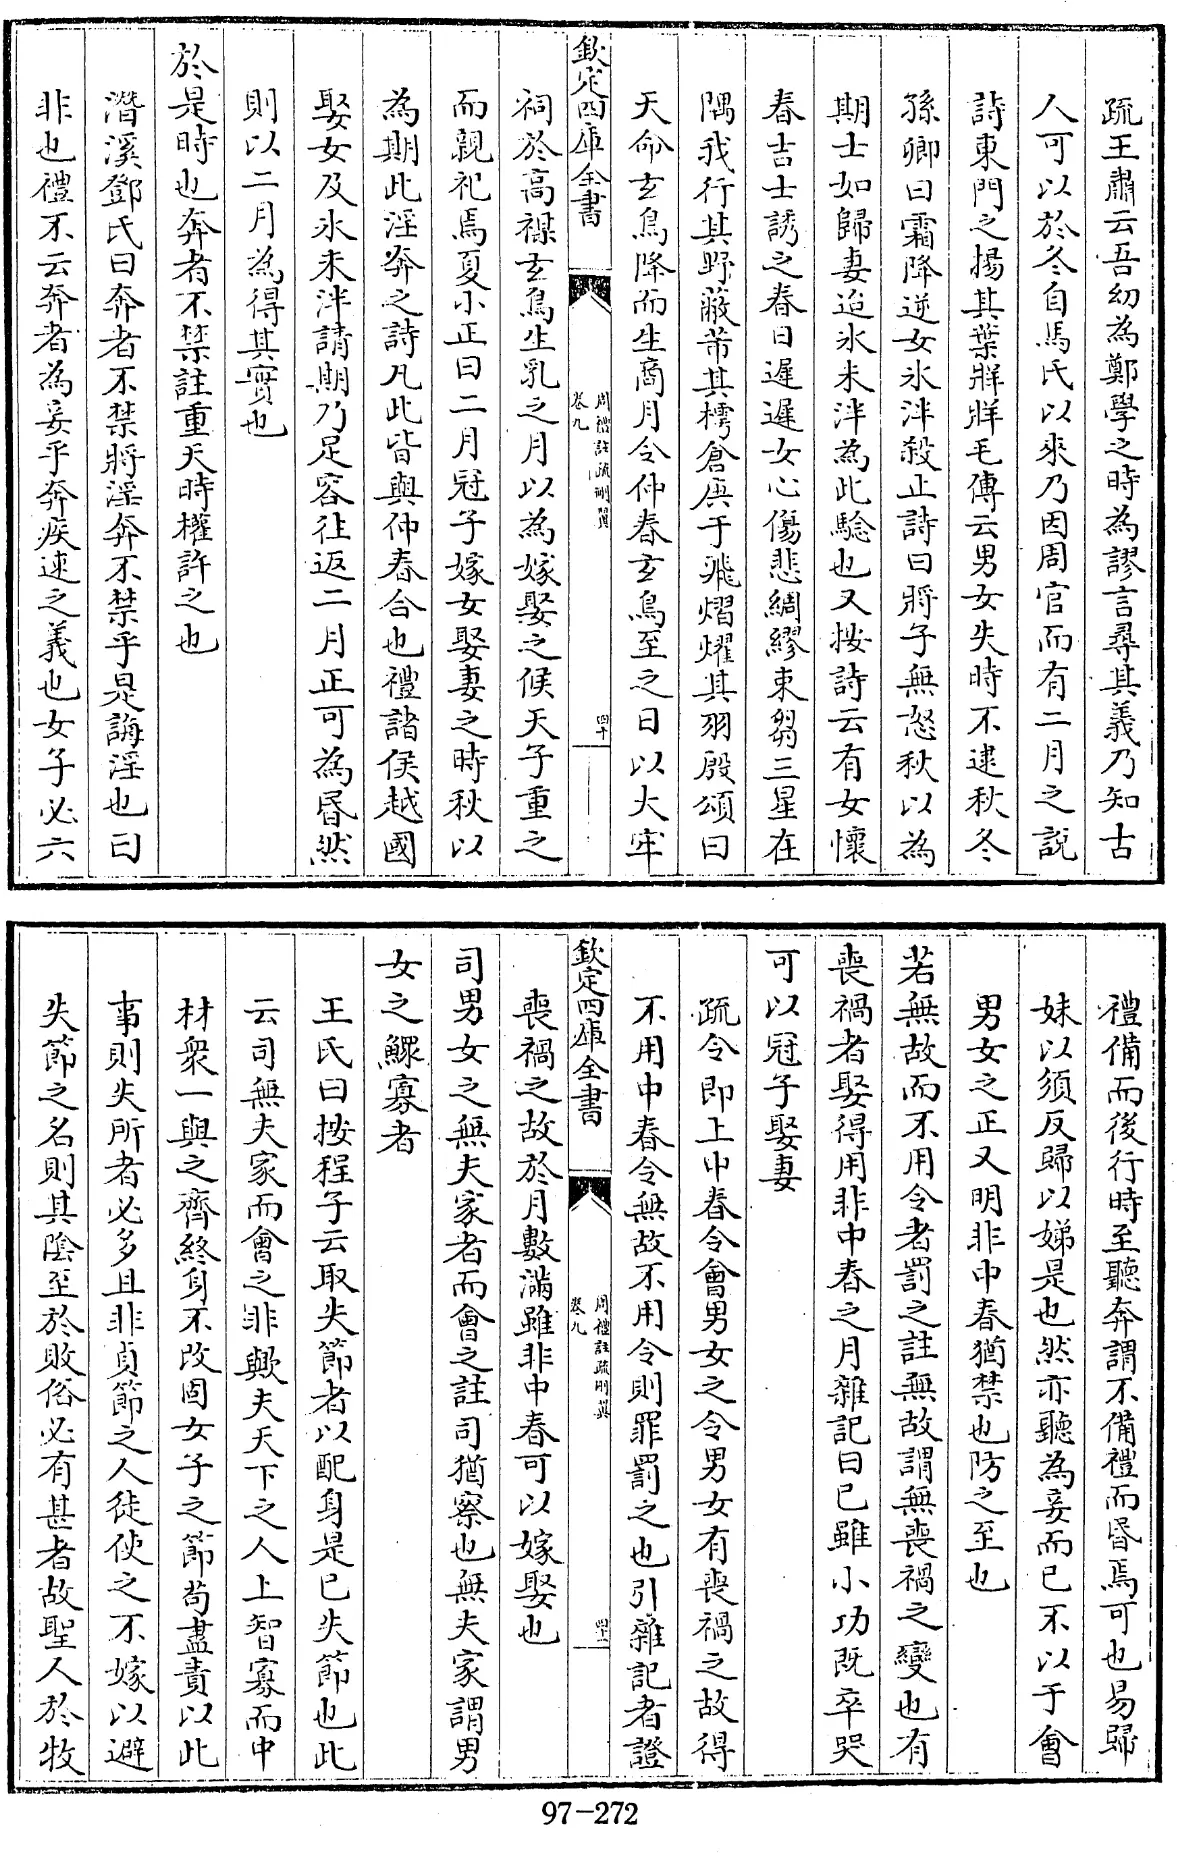 疏王肅云吾幼為鄭學之時為謬言尋其義乃知古
人可以於冬自馬氏以來乃因周官而有二月之說
詩東門之揚其葉牂牂毛傳云男女失時不逮秋冬
孫卿曰霜降逆女氷泮殺止詩曰將子無怒秋以為
期士如歸妻迨氷未泮為此驗也又按詩云有女懷
春吉士誘之春日遲遲女心傷悲綢繆束芻三星在
隅我行其野蔽芾其樗倉庚于飛熠燿其羽殷頌曰
天命玄鳥降而生商月令仲春玄鳥至之日以大牢
欽定四庫全書
周禮註疏刪翼
卷九
四十
祠於高禖玄鳥生乳之月以為嫁娶之候天子重之
而親祀焉夏小正曰二月冠子嫁女娶妻之時秋以
為期此淫奔之詩凡此皆與仲春合也禮諸侯越國
娶女及氷未泮請期乃足容往返二月正可為昏然
則以二月為得其實也
於是時也奔者不禁註重天時權許之也
潛溪鄧氏曰奔者不禁將淫奔不禁乎是誨淫也曰
非也禮不云奔者為妾乎奔疾速之義也女子必六
禮備而後行時至聽奔謂不備禮而昏焉可也易歸
妹以須反歸以娣是也然亦聽為妾而已不以于會
男女之正又明非中春猶禁也防之至也
若無故而不用令者罰之註無故謂無喪禍之變也有
喪禍者娶得用非中春之月雜記曰已雖小功既卒哭
可以冠子娶妻
疏令即上中春令會男女之令男女有喪禍之故得
不用中春令無故不用令則罪罰之也引雜記者證
欽定四庫全書
周禮註疏刪翼
卷九
四十一
喪禍之故於月數滿雖非中春可以嫁娶也
司男女之無夫家者而會之註司猶察也無夫家謂男
女之鰥寡者
王氏曰按程子云取失節者以配身是已失節也此
云司無夫家而會之非歟夫天下之人上智寡而中
材衆一與之齊終身不改固女子之節苟盡責以此
事則失所者必多且非貞節之人徒使之不嫁以避
失節之名則其陰至於敗俗必有甚者故聖人於牧
97-272